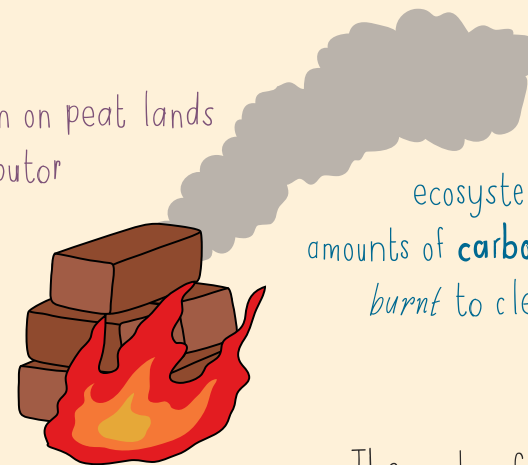 n on peat lands
butor
ecosyste
amounts of carbo
burnt to cle